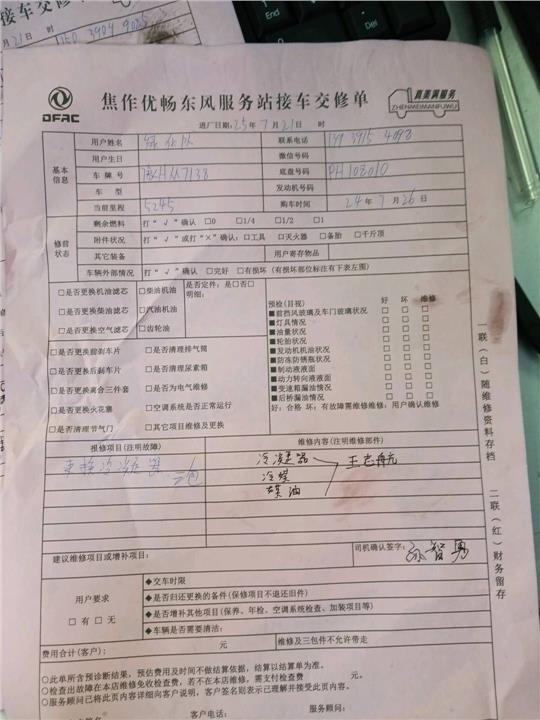 接车交修
月21日 150 3904 9085
DFAC
焦作优畅东风服务站接车交修单
真美满服务
ZHENMEIMANFUWU
进厂日期: 25年7月21日 时
基本信息
用户姓名 联系电话
用户生日 微信号码
车牌号 底盘号码 PH108010
车型 发动机号码
当前里程 5245 购车时间 24年7月26日
修前状态
剩余燃料 打“√”确认 □0 □1/4 □1/2 □1
附件状况 打“√”或打“×”确认:□工具 □灭火器 □备胎 □千斤顶
其它装备 用户寄存物品
车辆外部情况 打“√”确认 □完好 □有损坏(有损坏部位标注有下表左图)
□是否更换机油滤芯 □柴油机油 是否定件:是□否□
明细:
□是否更换柴油滤芯 □汽油机油
□是否更换空气滤芯 □齿轮油
□是否更换前刹车片 □是否清理排气筒
□是否更换后刹车片 □是否清理尿素箱
□是否更换离合三件套 □是否为电气维修
□是否更换火花塞 □空调系统是否正常运行
□是否清理节气门 □其它项目维修及更换
预检(目视) 好 坏 维修
■前挡风玻璃及车门玻璃状况 □ □ □
■灯具情况 □ □ □
■油量状况 □ □ □
■轮胎状况 □ □ □
■发动机机油状况 □ □ □
■防冻防锈瓶状况 □ □ □
■制动液液面 □ □ □
■动力转向液液面 □ □ □
■变速箱漏油情况 □ □ □
■后桥漏油情况 □ □ □
好:合格 坏:有故障需维修维修:用户确认维修
报修项目(注明故障) 维修内容(注明维修部件)
更换冷凝器 冷凝器
冷媒
冻油
建议维修项目或增补项目:
司机确认签字: 孙智勇
用户要求
□有 □无
◆交车时限
◆是否归还更换的备件(保修项目不退还旧件)
◆是否增补其他项目(保养、年检、空调系统检查、加装项目等)
◆车辆是否需要清洁:
费用合计(客户): 元 维修及三包件不允许带走
○此单所含预诊断结果,预估费用及时间不做结算依据,结算以结算单为准。
○检查出故障在本店维修免收检查费,若不在本店维修,需支付检查费 元。
○服务顾问已将此页内容详细向客户说明,客户签名则表示已理解并接受此页内容。
客户电话: 服务顾问:
一联(白)随维修资料存档
二联(红)财务留存